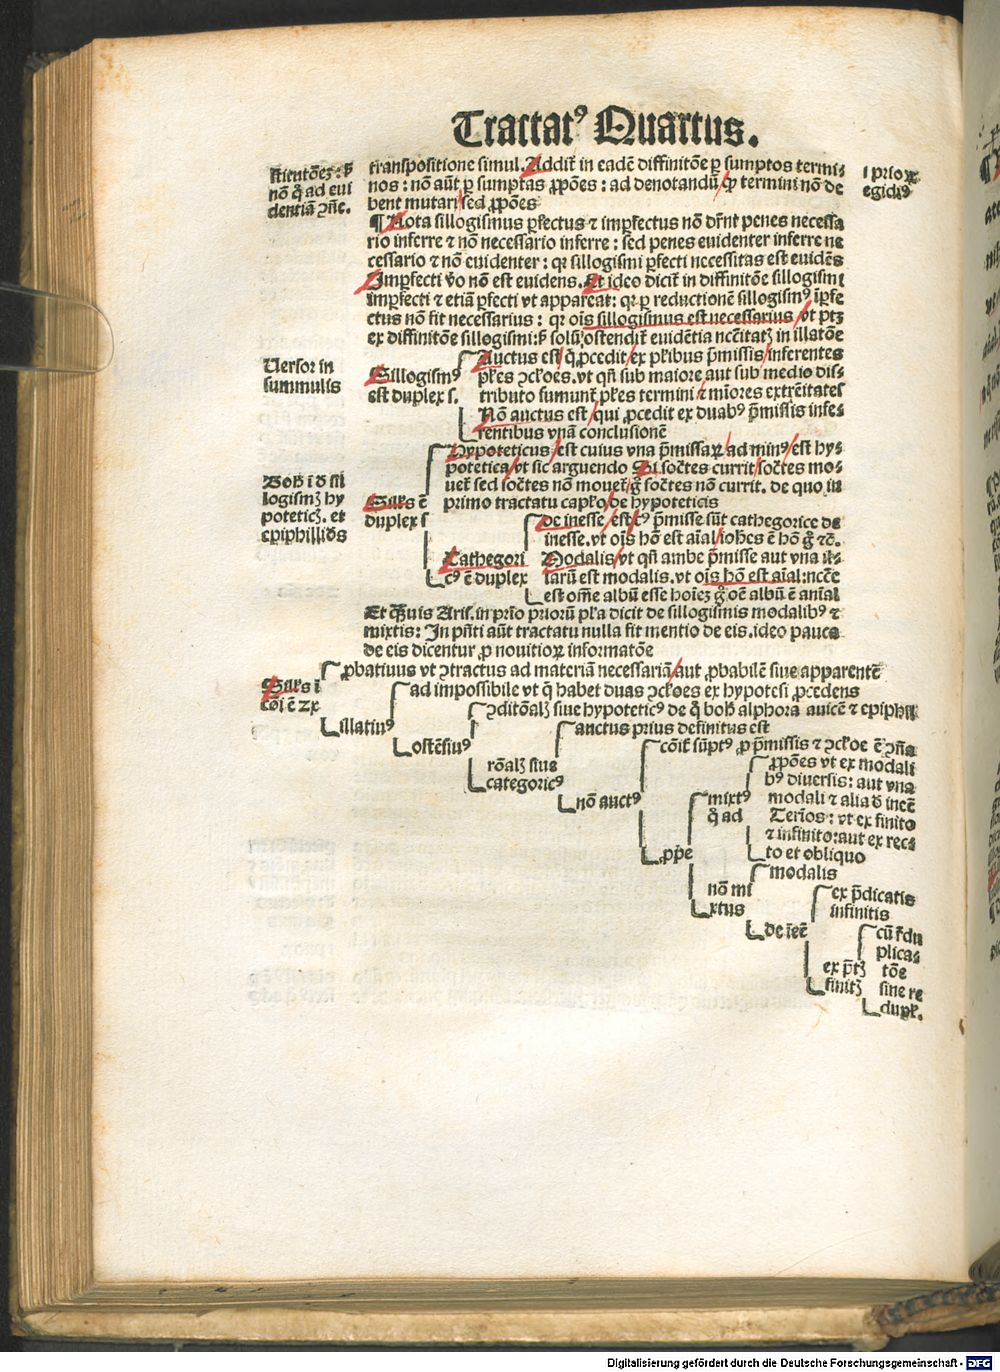 Tractatꝰ Quartus.
transpositione simul. Addit̄ in eadē diffinitōe ꝑ sumptos termi⸗
nos : nō aūt ꝑ sumptas ꝓpōes : ad denotandū ꝙ termini nō de
bent mutari sed ꝓpōes
nō q̄ ad eui
dentiā ꝯn̄e.
i prioꝝ
egidiꝰ
¶ Nota sillogismus ꝑfectus ⁊ imꝑfectus nō dr̄nt penes necessa
rio inferre ⁊ nō necessario inferre : sed penes euidenter inferre ne
cessario ⁊ nō euidenter : qꝛ sillogismi ꝑfecti necessitas est euidēs
Imꝑfecti v̄o nō est euidens. Et ideo dicit̄ in diffinitōe sillogismi
imꝑfecti ⁊ etiā ꝑfecti vt appareat : qꝛ ꝑ reductionē sillogismꝰ īꝑfe
ctus nō fit necessarius : qꝛ oīs sillogismus est necessarius vt ptꝫ
ex diffinitōe sillogismi : sꝫ solū ostendit̄ euidētia ncc̄itatꝫ in illatōe
Uersor in
summulis
Sillogismꝰ
est duplex s.
Auctus est q̄ ꝓcedit ex pl̄ribus p̄missis inferentes
pl̄es ꝯcl̄oes. vt qn̄ sub maiore aut sub medio dis⸗
tributo sumunt̄ pl̄es termini ⁊ mīores extrēitates
Nō auctus est qui ꝓcedit ex duabꝰ p̄missis infe⸗
rentibus vnā conclusionē
logismꝫ hy
poteticꝫ. et
epiphillid̄s
duplex s
Hypoteticus est cuius vna p̄missaꝝ ad minꝰ est hy⸗
potetica vt sic arguendo Si soc̄tes currit soc̄tes mo⸗
uet̄ sed soc̄tes nō mouet̄ g̊ soc̄tes nō currit. de quo in
primo tractatu capl̄o de hypoteticis
Cathegori
cꝰ ē duplex
De inesse est cꝰ p̄misse sūt cathegorice de
inesse. vt oīs hō est aīal ioh̄es ē hō g̊ ⁊c̄.
Modalis vt qn̄ ambe p̄misse aut vna il⸗
larū est modalis. vt oīs hō est aīal : ncc̄e
est om̄e albū esse hoīeꝫ g̊ oē albū ē aīal
Et q̄ꝫuis Aris. in pr̄io prioꝝ pl̄a dicit de sillogismis modalibꝰ ⁊
mixtis : In pn̄ti aūt tractatu nulla fit mentio de eis. ideo pauca
de eis dicentur ꝓ nouitioꝝ informatōe
cōi ē 2x
ꝓbatiuus vt ꝯtractus ad materiā necessariā aut ꝓbabilē siue apparentē
illatiuꝰ
ad impossibile vt q̄ habet duas ꝯcl̄oes ex hypotesi ꝓcedens
ostēsiuꝰ
ꝯditōalꝫ siue hypoteticꝰ de q̄ boh̄ alphora auicē ⁊ epiphil
rōalꝫ siue
categoricꝰ
auctus prius definitus est
nō auctꝰ
cōit̄ sūptꝰ ꝓ p̄missis ⁊ ꝯcl̄oe ē ꝯn̄a
ꝓpe
mixtꝰ
q̄ ad
ꝓpōes vt ex modali
bꝰ diuersis : aut vna
modali ⁊ alia d̄ inēē
Ter̄ios : vt ex finito
⁊ infinito : aut ex rec⸗
to et obliquo
nō mi
xtus
modalis
de īeē
ex p̄dicatis
infinitis
ex p̄tꝫ
finitꝫ
cū r̄du
plicas
tōe
sine re
dupl̄.